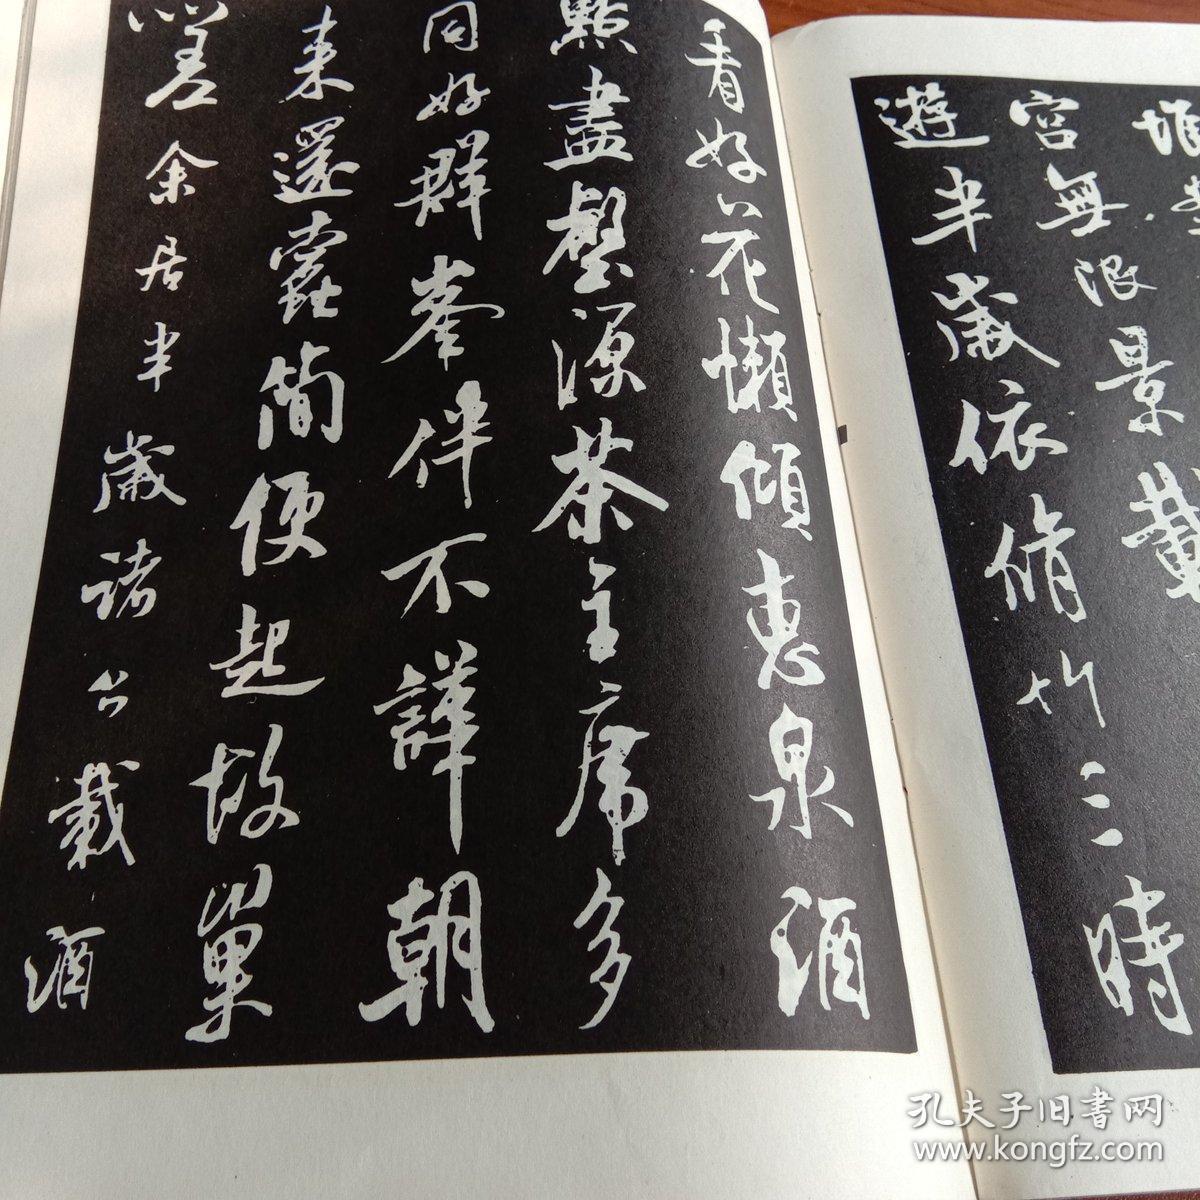 堆
宮無限景載
遊半歲依脩竹三時
看好花懶傾惠泉酒
點盡壑源茶主席多
同好群峯伴不譁朝
来還蠹簡便起故巢
嗟余居半歲諸公載酒
孔夫子旧書网
www.kongfz.com